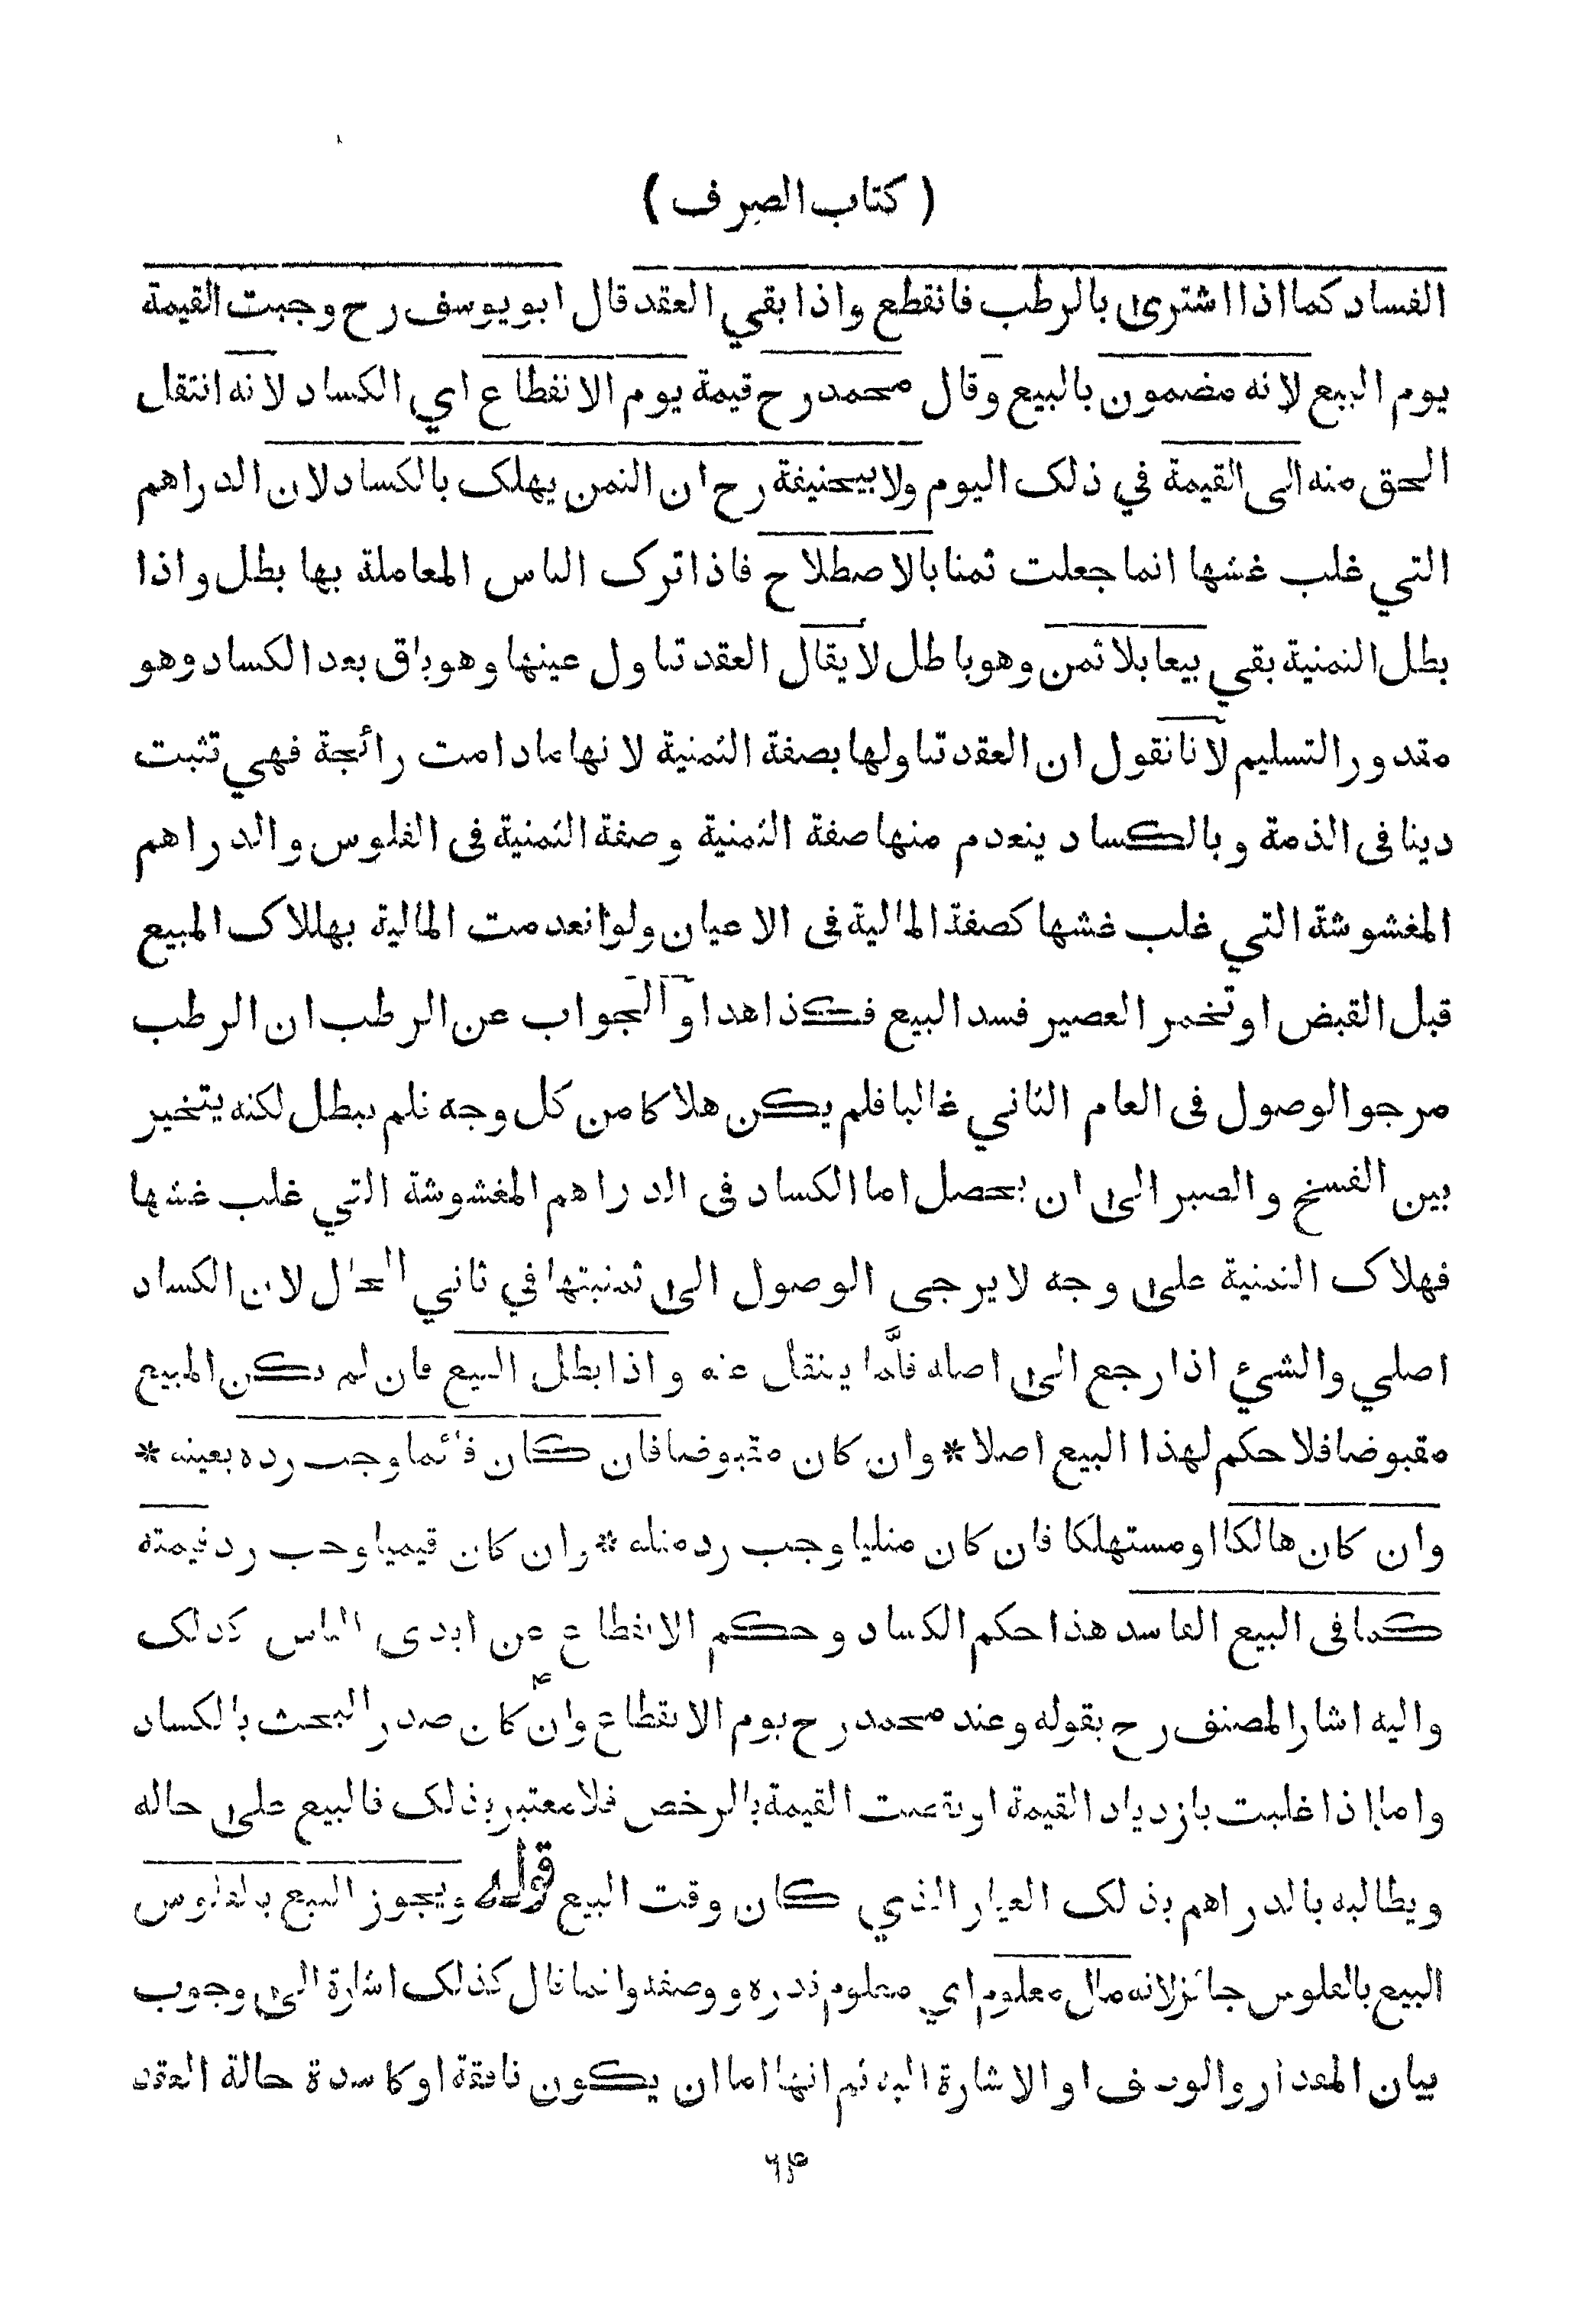 ( كتاب الصرف )
الفساد كما اذا اشترى بالرطب فانقطع واذا بقي العقد قال ابو يوسف رح وجبت القيمة
يوم البيع لانه مضمون بالبيع وقال محمد رح قيمة يوم الانقطاع اي الكساد لانه انتقل
الحق منه الى القيمة في ذلك اليوم ولابيحنيفة رح ان الثمن يهلك بالكساد لان الدراهم
التي غلب غشها انما جعلت ثمنا بالاصطلاح فاذا ترك الناس المعاملة بها بطل واذا
بطل الثمنية بقي بيعا بلا ثمن وهو باطل لا يقال العقد تناول عينها وهو باق بعد الكساد وهو
مقدور التسليم لانا نقول ان العقد تناولها بصفة الثمنية لانها مادامت رائجة فهي تثبت
دينا في الذمة وبالكساد ينعدم منها صفة الثمنية وصفة الثمنية في الفلوس والدراهم
المغشوشة التي غلب غشها كصفة المالية في الاعيان ولو انعدمت المالية بهلاك المبيع
قبل القبض او تخمر العصير فسد البيع فكذا هذا والجواب عن الرطب ان الرطب
مرجو الوصول في العام الثاني غالبا فلم يكن هلاكا من كل وجه فلم يبطل لكنه يتخير
بين الفسخ والصبر الى ان يحصل اما الكساد في الدراهم المغشوشة التي غلب غشها
فهلاك الثمنية على وجه لا يرجى الوصول الى ثمنيتها في ثاني الحال لان الكساد
اصلي والشئ اذا رجع الى اصله قلّما ينتقل عنه واذا بطل البيع فان لم يكن المبيع
مقبوضا فلا حكم لهذا البيع اصلا * وان كان مقبوضا فان كان قائما وجب رده بعينه *
وان كان هالكا او مستهلكا فان كان مثليا وجب رد مثله * وان كان قيميا وجب رد قيمته
كما في البيع الفاسد هذا حكم الكساد وحكم الانقطاع عن ايدى الناس كذلك
واليه اشار المصنف رح بقوله وعند محمد رح يوم الانقطاع وان كان صدر البحث بالكساد
واما اذا غلبت بازدياد القيمة او نقصت القيمة بالرخص فلا معتبر بذلك فالبيع على حاله
ويطالبه بالدراهم بذلك العيار الذي كان وقت البيع قوله ويجوز البيع بالفلوس
البيع بالفلوس جائز لانه مال معلوم اي معلوم قدره ووصفه وانما قال كذلك اشارة الى وجوب
بيان المقدار والوصف او الاشارة اليه ثم انها اما ان يكون نافقة او كاسدة حالة العقد
۶۴